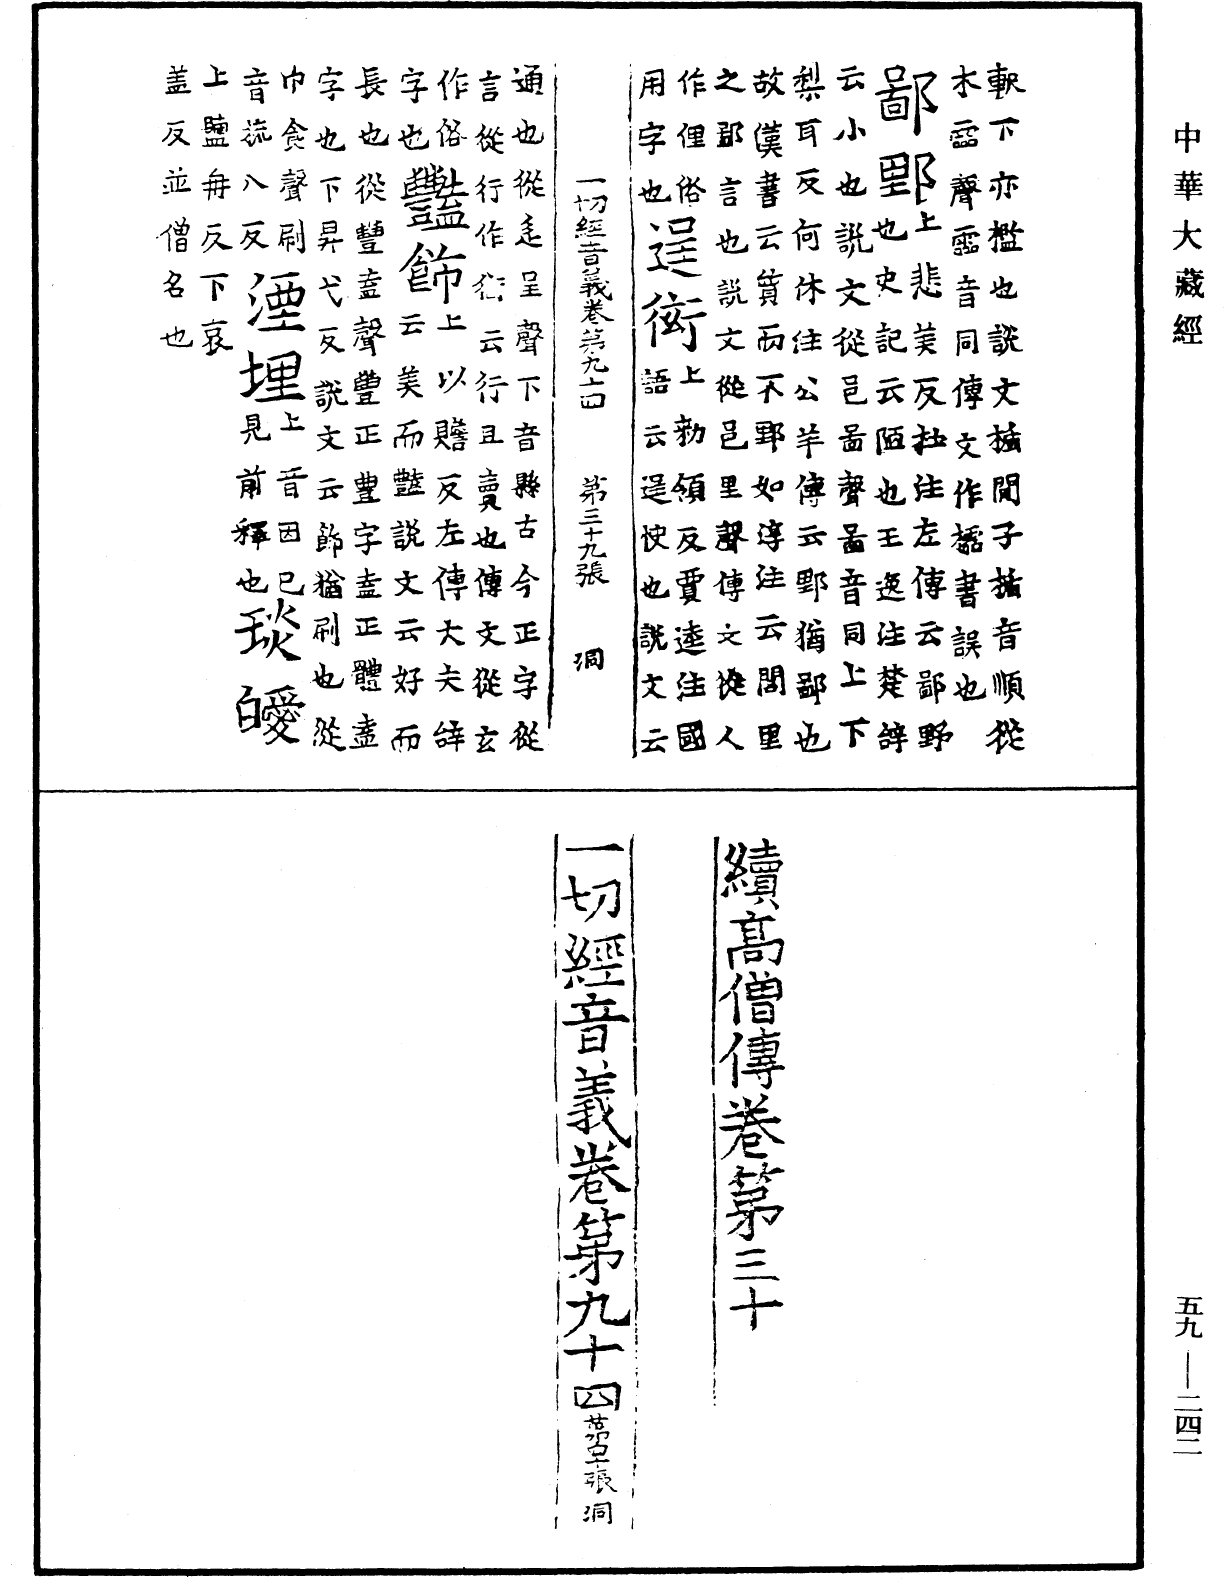 中華大藏經
軟下亦檻也說文楯閒子楯音順從
木霝聲霝音同傳文作櫺書誤也
鄙野上悲美反杜注左傳云鄙野
也史記云陋也王逸注楚辞
云小也說文從邑啚聲啚音同上下
梨耳反何休注公羊傳云野猶鄙也
故漢書云質而不野如淳注云閭里
之鄙言也說文從邑里聲傳文從人
作俚俗逞衒上勑領反賈逵注國
用字也語云逞快也說文云
一切經音義卷第九十四 第三十九張 洞
通也從辵呈聲下音縣古今正字從
言從行作衒云行且賣也傳文從玄
作俗豔飾上以贍反左傳大夫辞
字也云美而豔說文云好而
長也從豐盍聲豐正豐字盍正體盍
字也下昇弋反說文云飾猶刷也從
巾食聲刷湮埋上音因巳
音旒八反見前釋也琰皧
上鹽冉反下哀
盖反並僧名也
續高僧傳卷第三十
一切經音義卷第九十四 第四十張 洞
五九—二四二